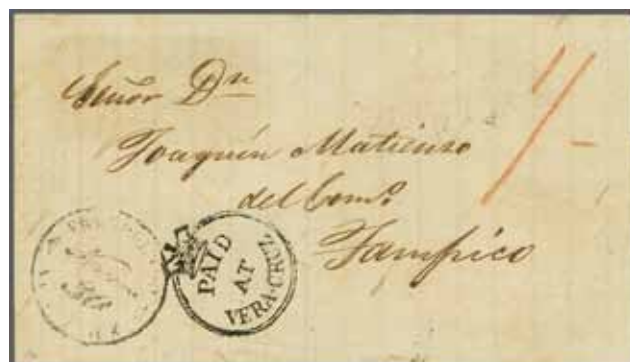 Señor Dn
1/-
Joaquín Matienzo
del Como
Tampico
PAID
AT
VERA-CRUZ